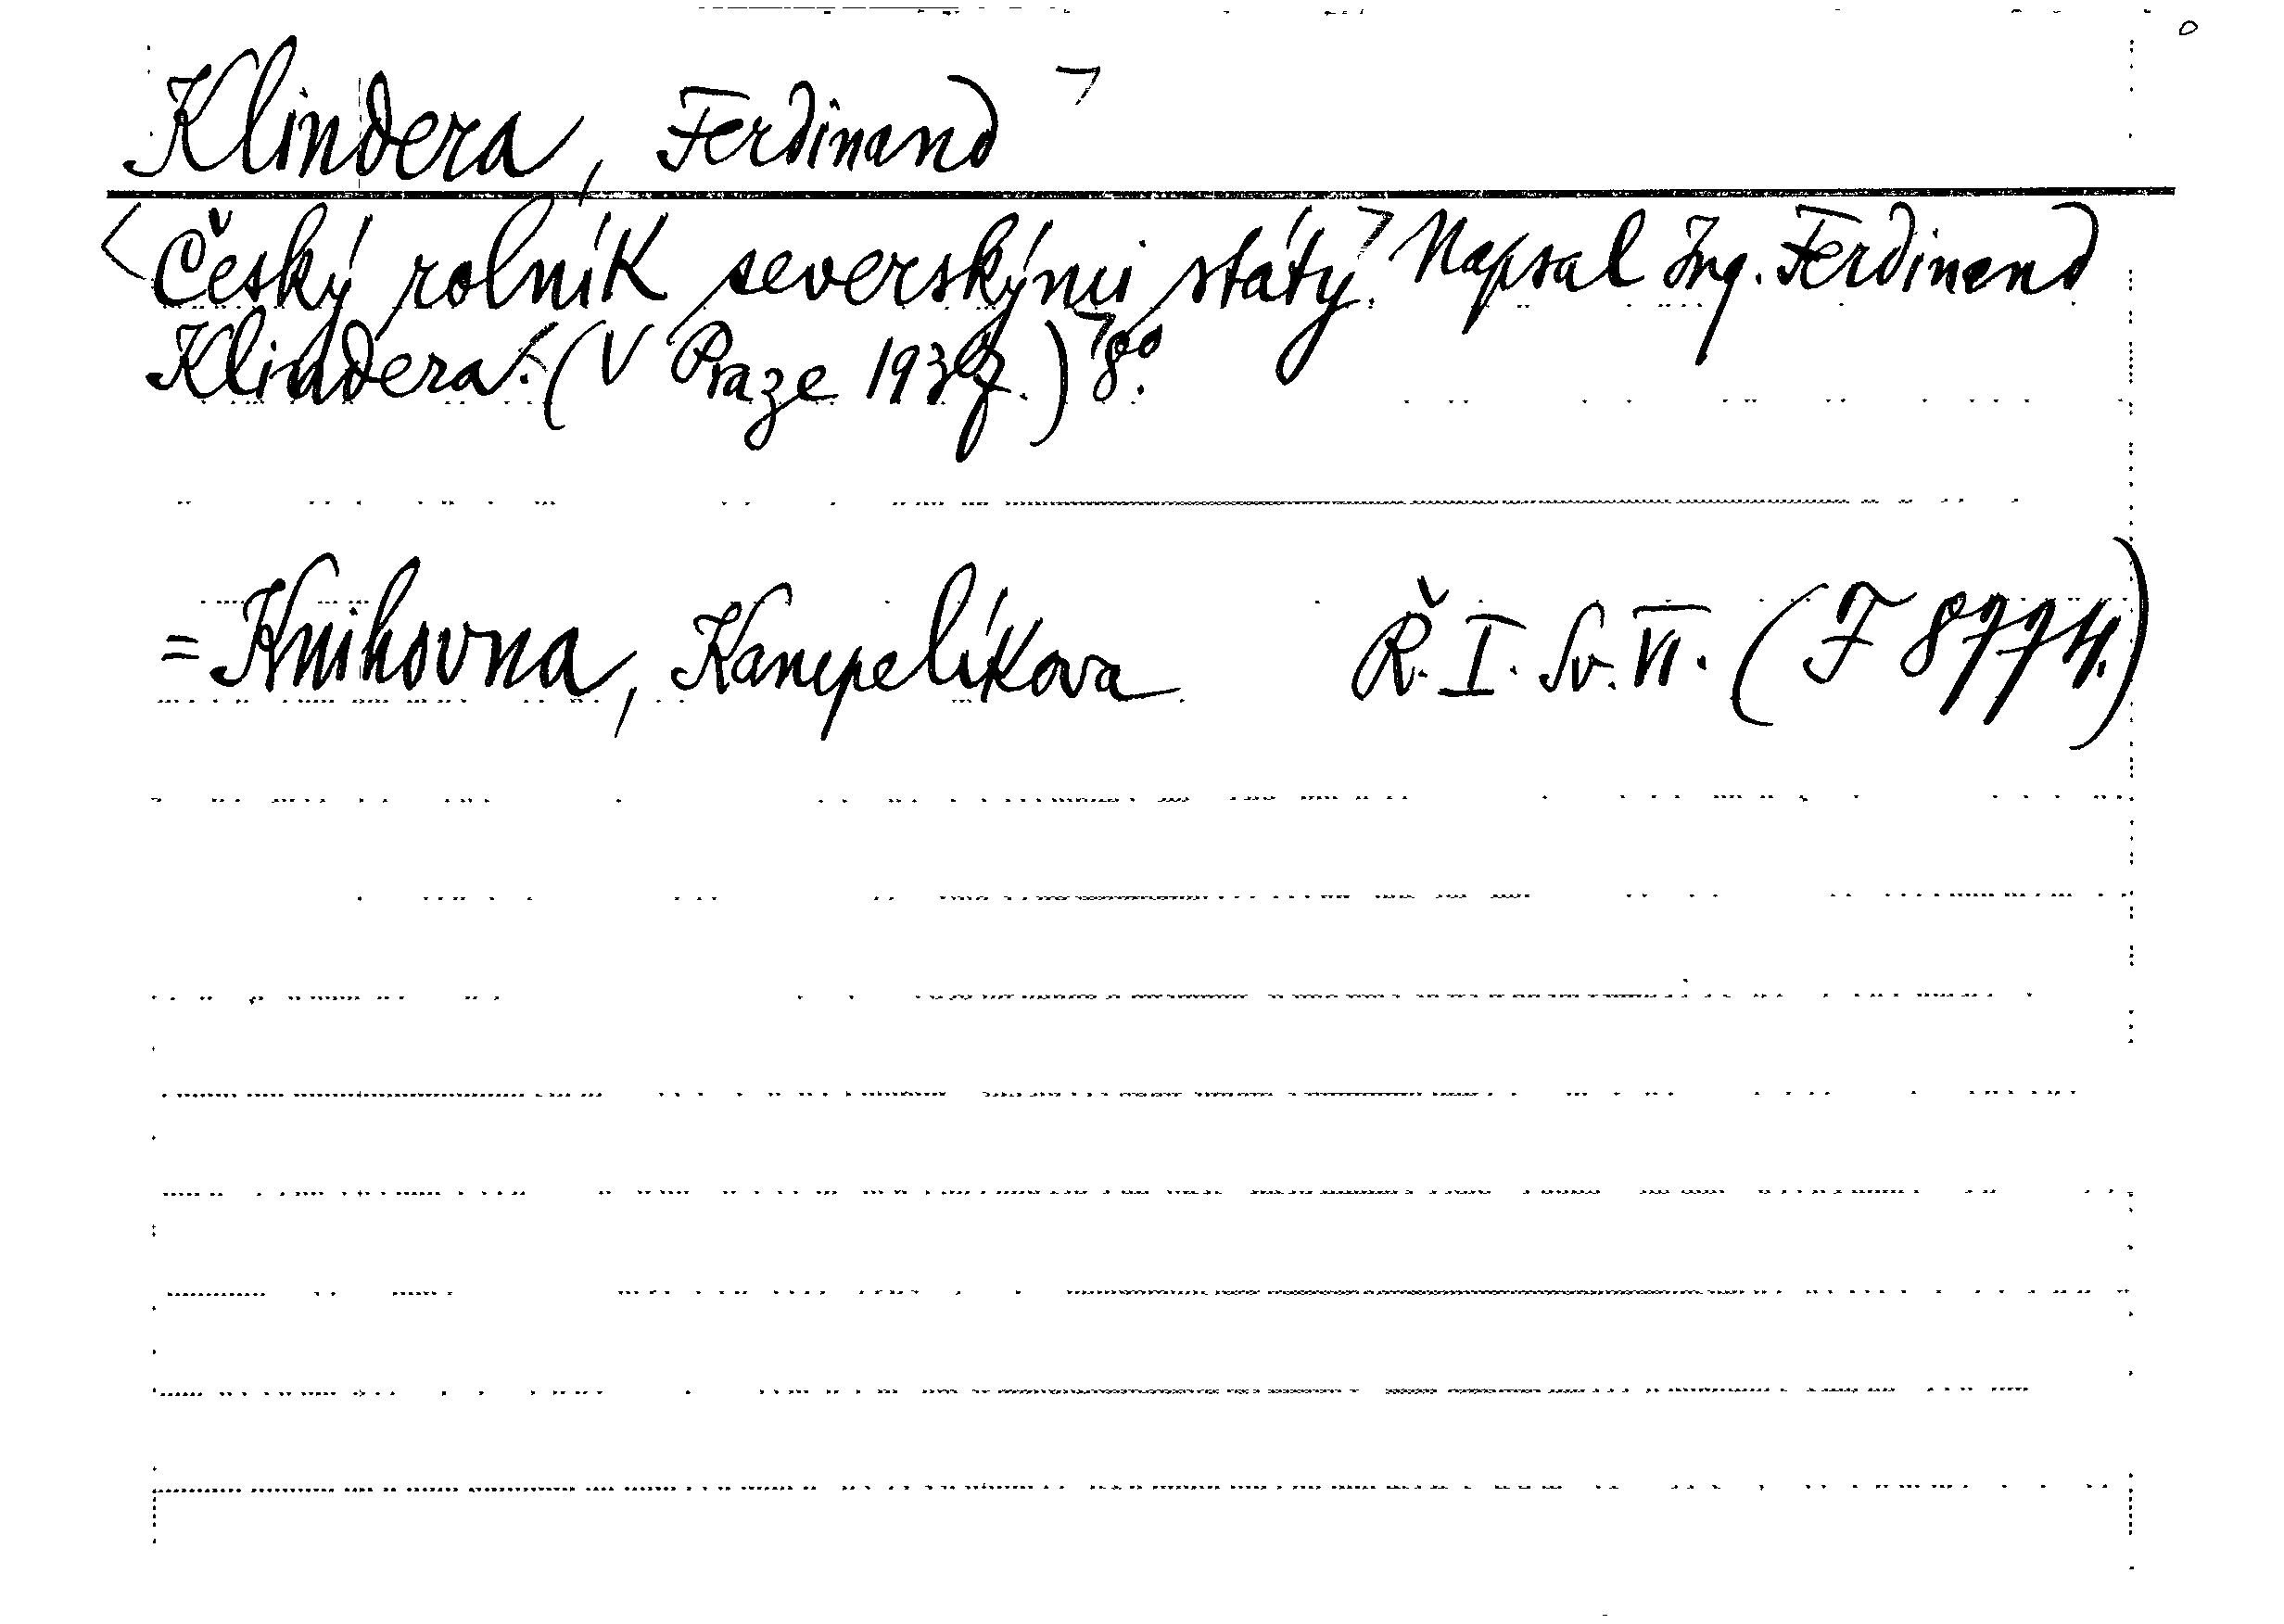 Klindera, Ferdinand ㄱ
<Český rolník severskými státy.ㄱ Napsal Ing. Ferdinand
Klindera. (V Praze 1937.)ㄱ 8º.
= Knihovna, Kampelíkova Ř. I. Sv. VI. (F 8774.)